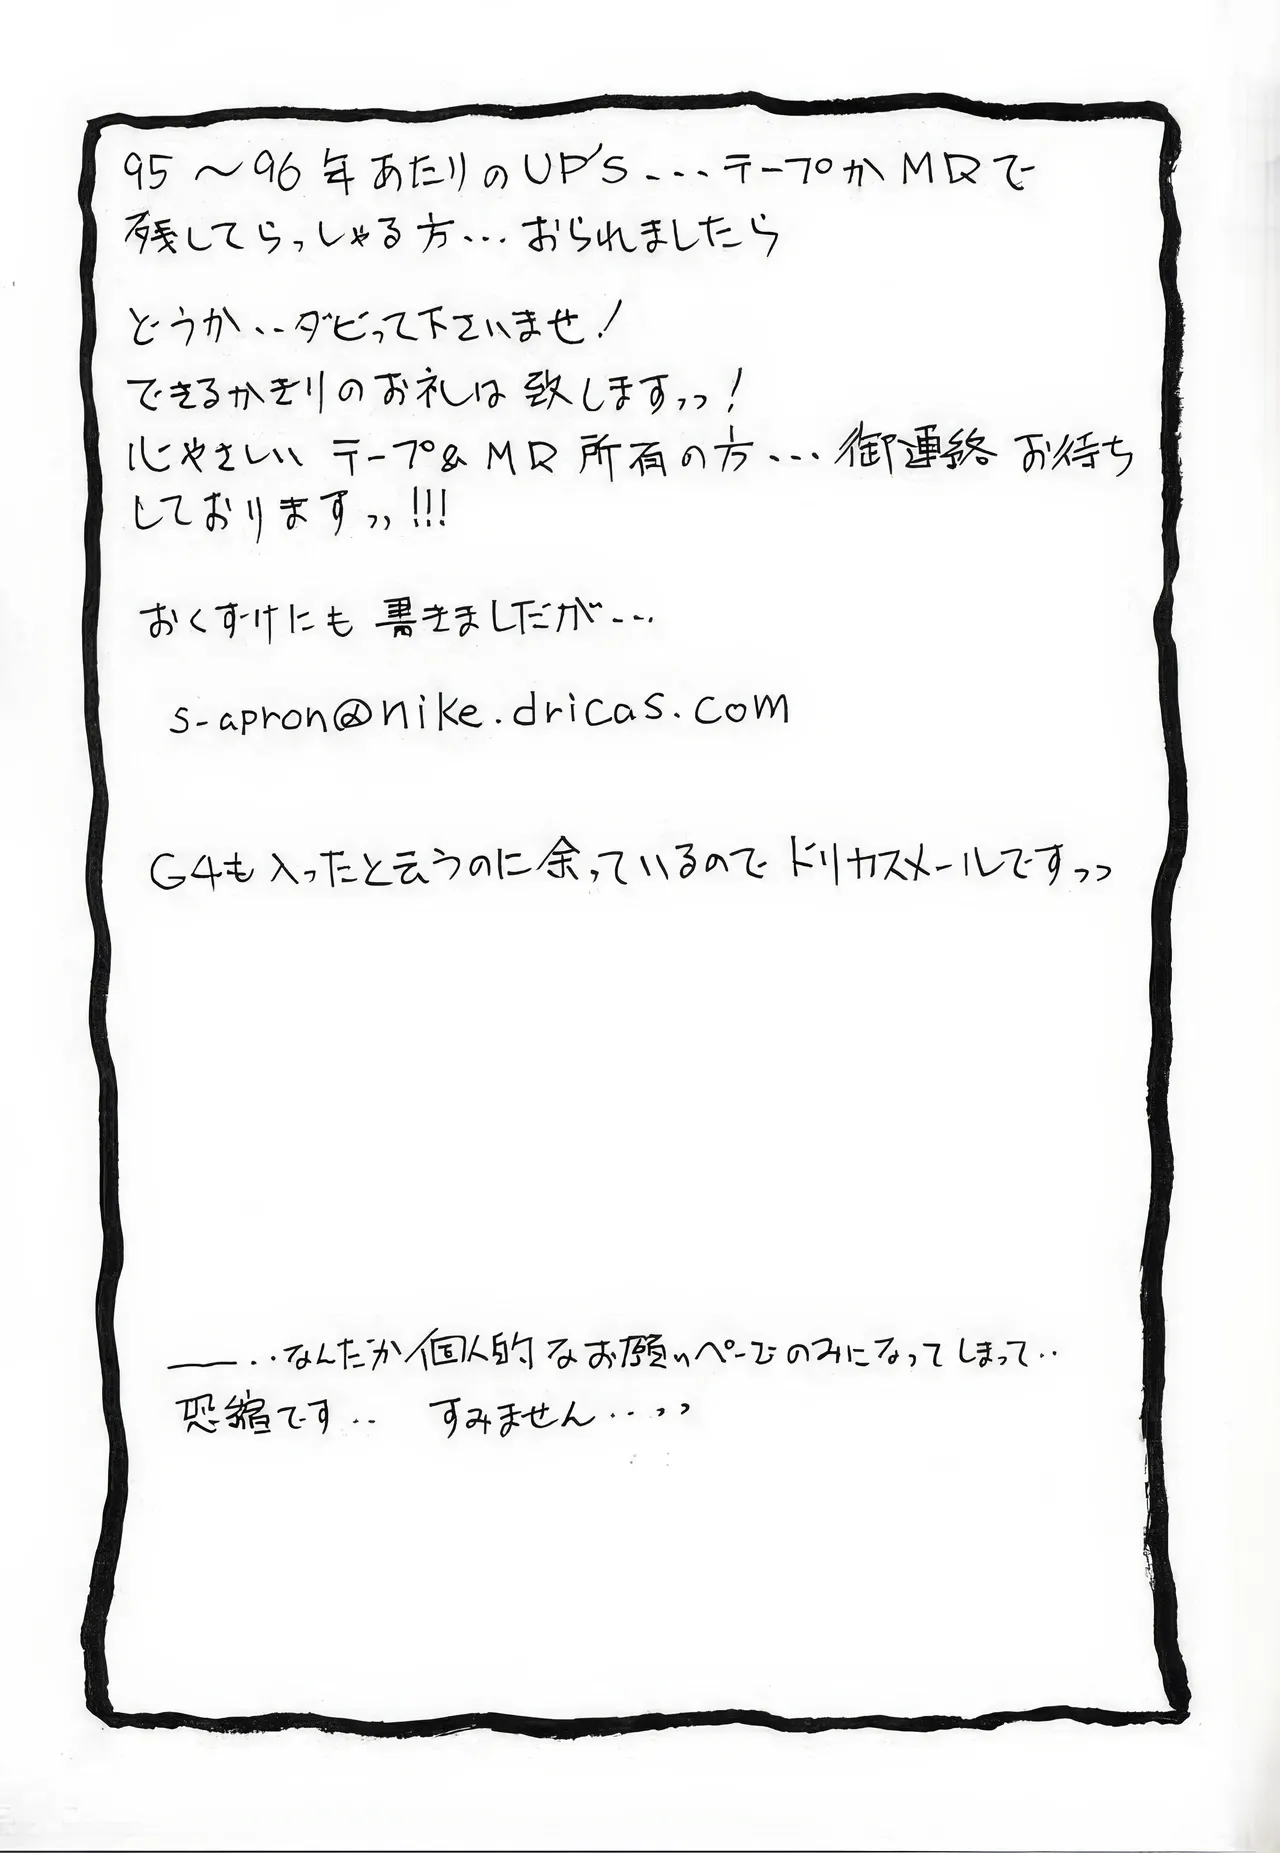 95～96年あたりのUP'S...テープかMDで
残してらっしゃる方...おられましたら
どうか..ダビって下さいませ!
できるかぎりのお礼は致しますっっ!
心やさしい テープ&MD所有の方...御連絡お待ち
しておりますっっ!!!
おくずけにも書きましたが...
s-apron@nike.dricas.com
G4も入ったと云うのに余っているのでドリカスメールですっっ
——..なんだか個人的なお願いページのみになってしまって..
恐縮です.. すみません...っっ